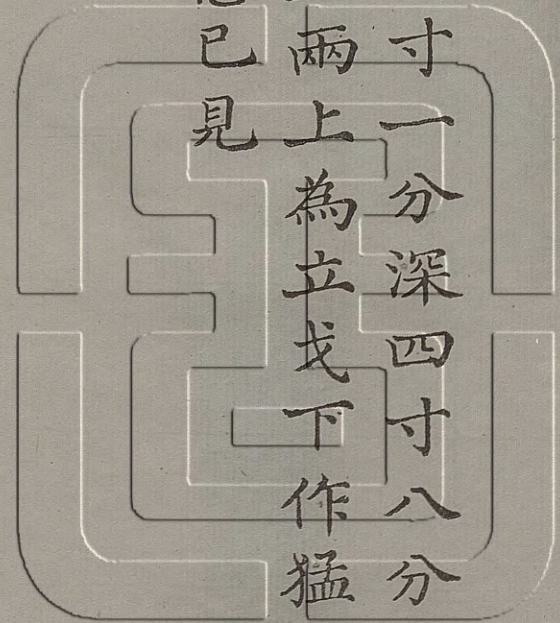 寸一分深四寸八分
兩上為立戈下作猛
已見